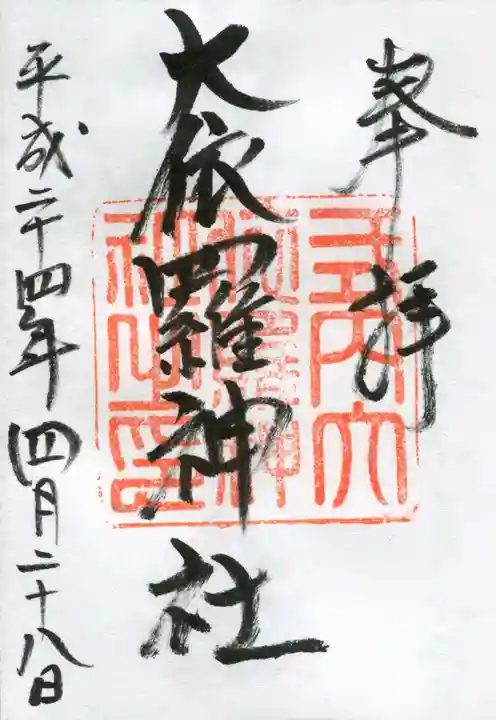 奉拝
大依羅神社
平成二十四年四月二十八日